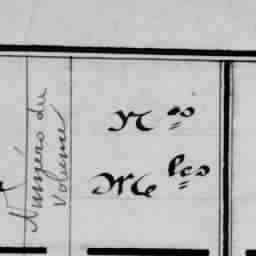 Numéros du
volume
Nos
Mles